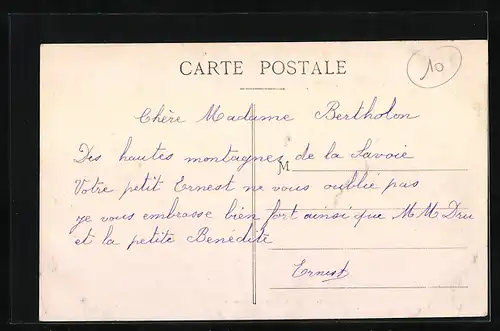 10
CARTE POSTALE
Chère Madame Bertholon
Des hautes montagnes de la Savoie
M
Votre petit Ernest ne vous oublie pas
je vous embrasse bien fort ainsi que M M Dru
et la petite Bénédite
Ernest